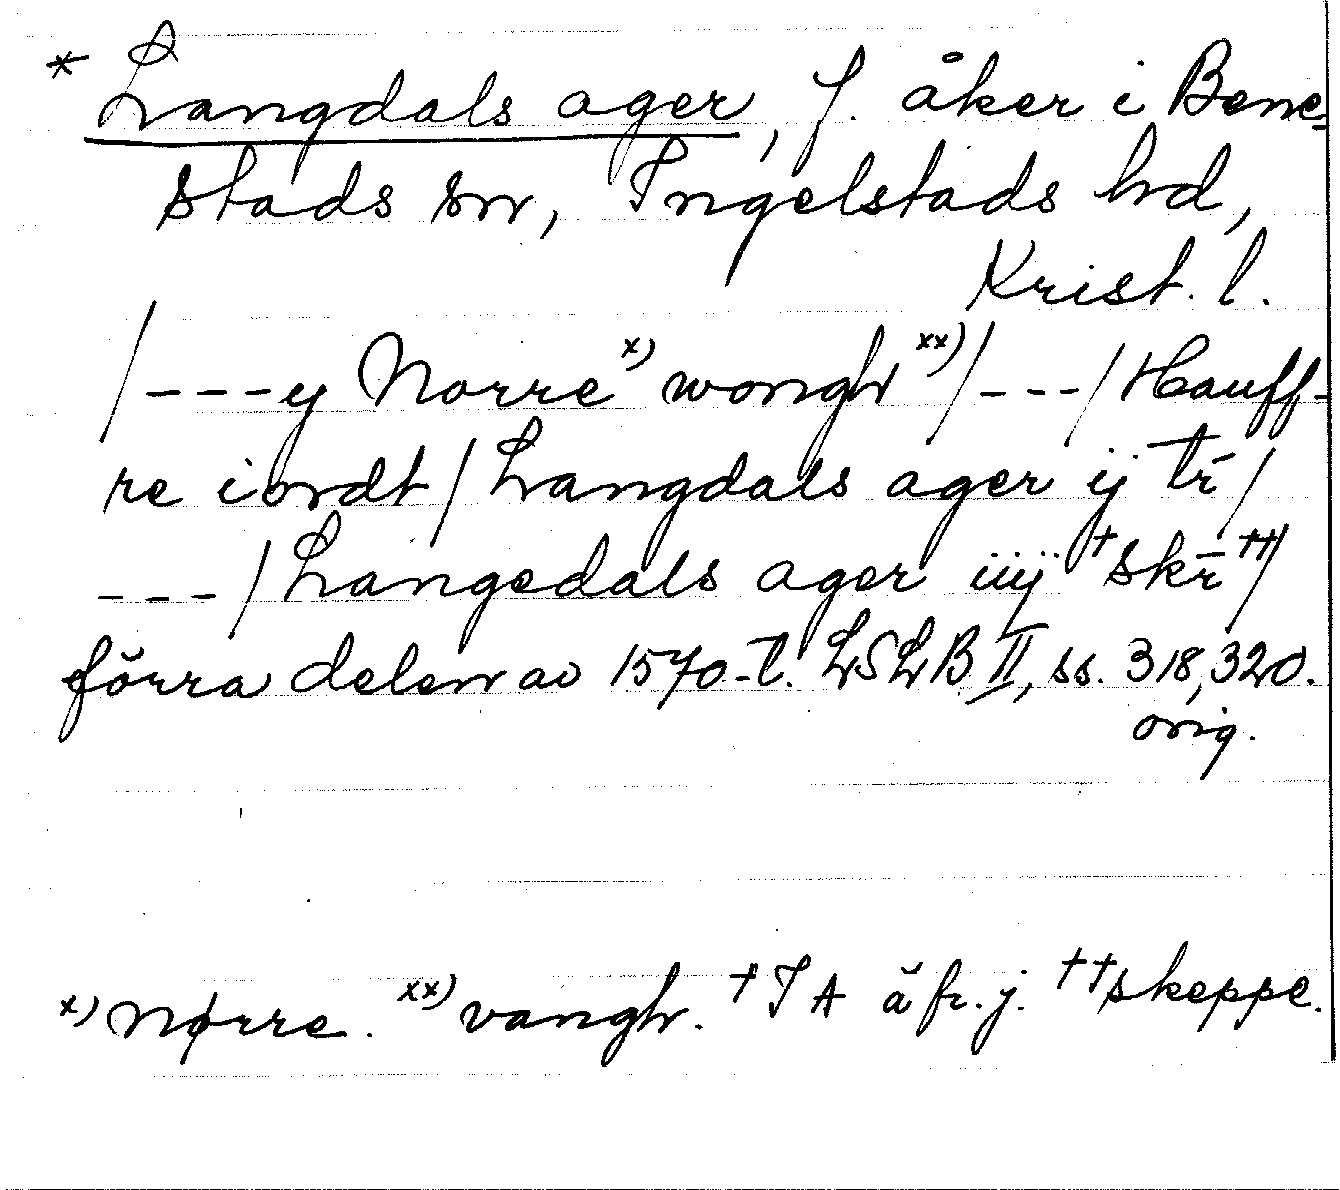 * Langdals ager, f. åker i Bene-
stads sn, Ingelstads hd,
Krist. l.
/---y Norre x) wongh xx)/---/Hauff-
re iordt/Langdals ager ij tr̄/
---/Langedals ager iiij † skr̄ ††/
förra delen av 1570-t. LSLB II, ss. 318, 320.
orig.
x) Nørre. xx) vangh. † I A ä fr. j. †† skeppe.